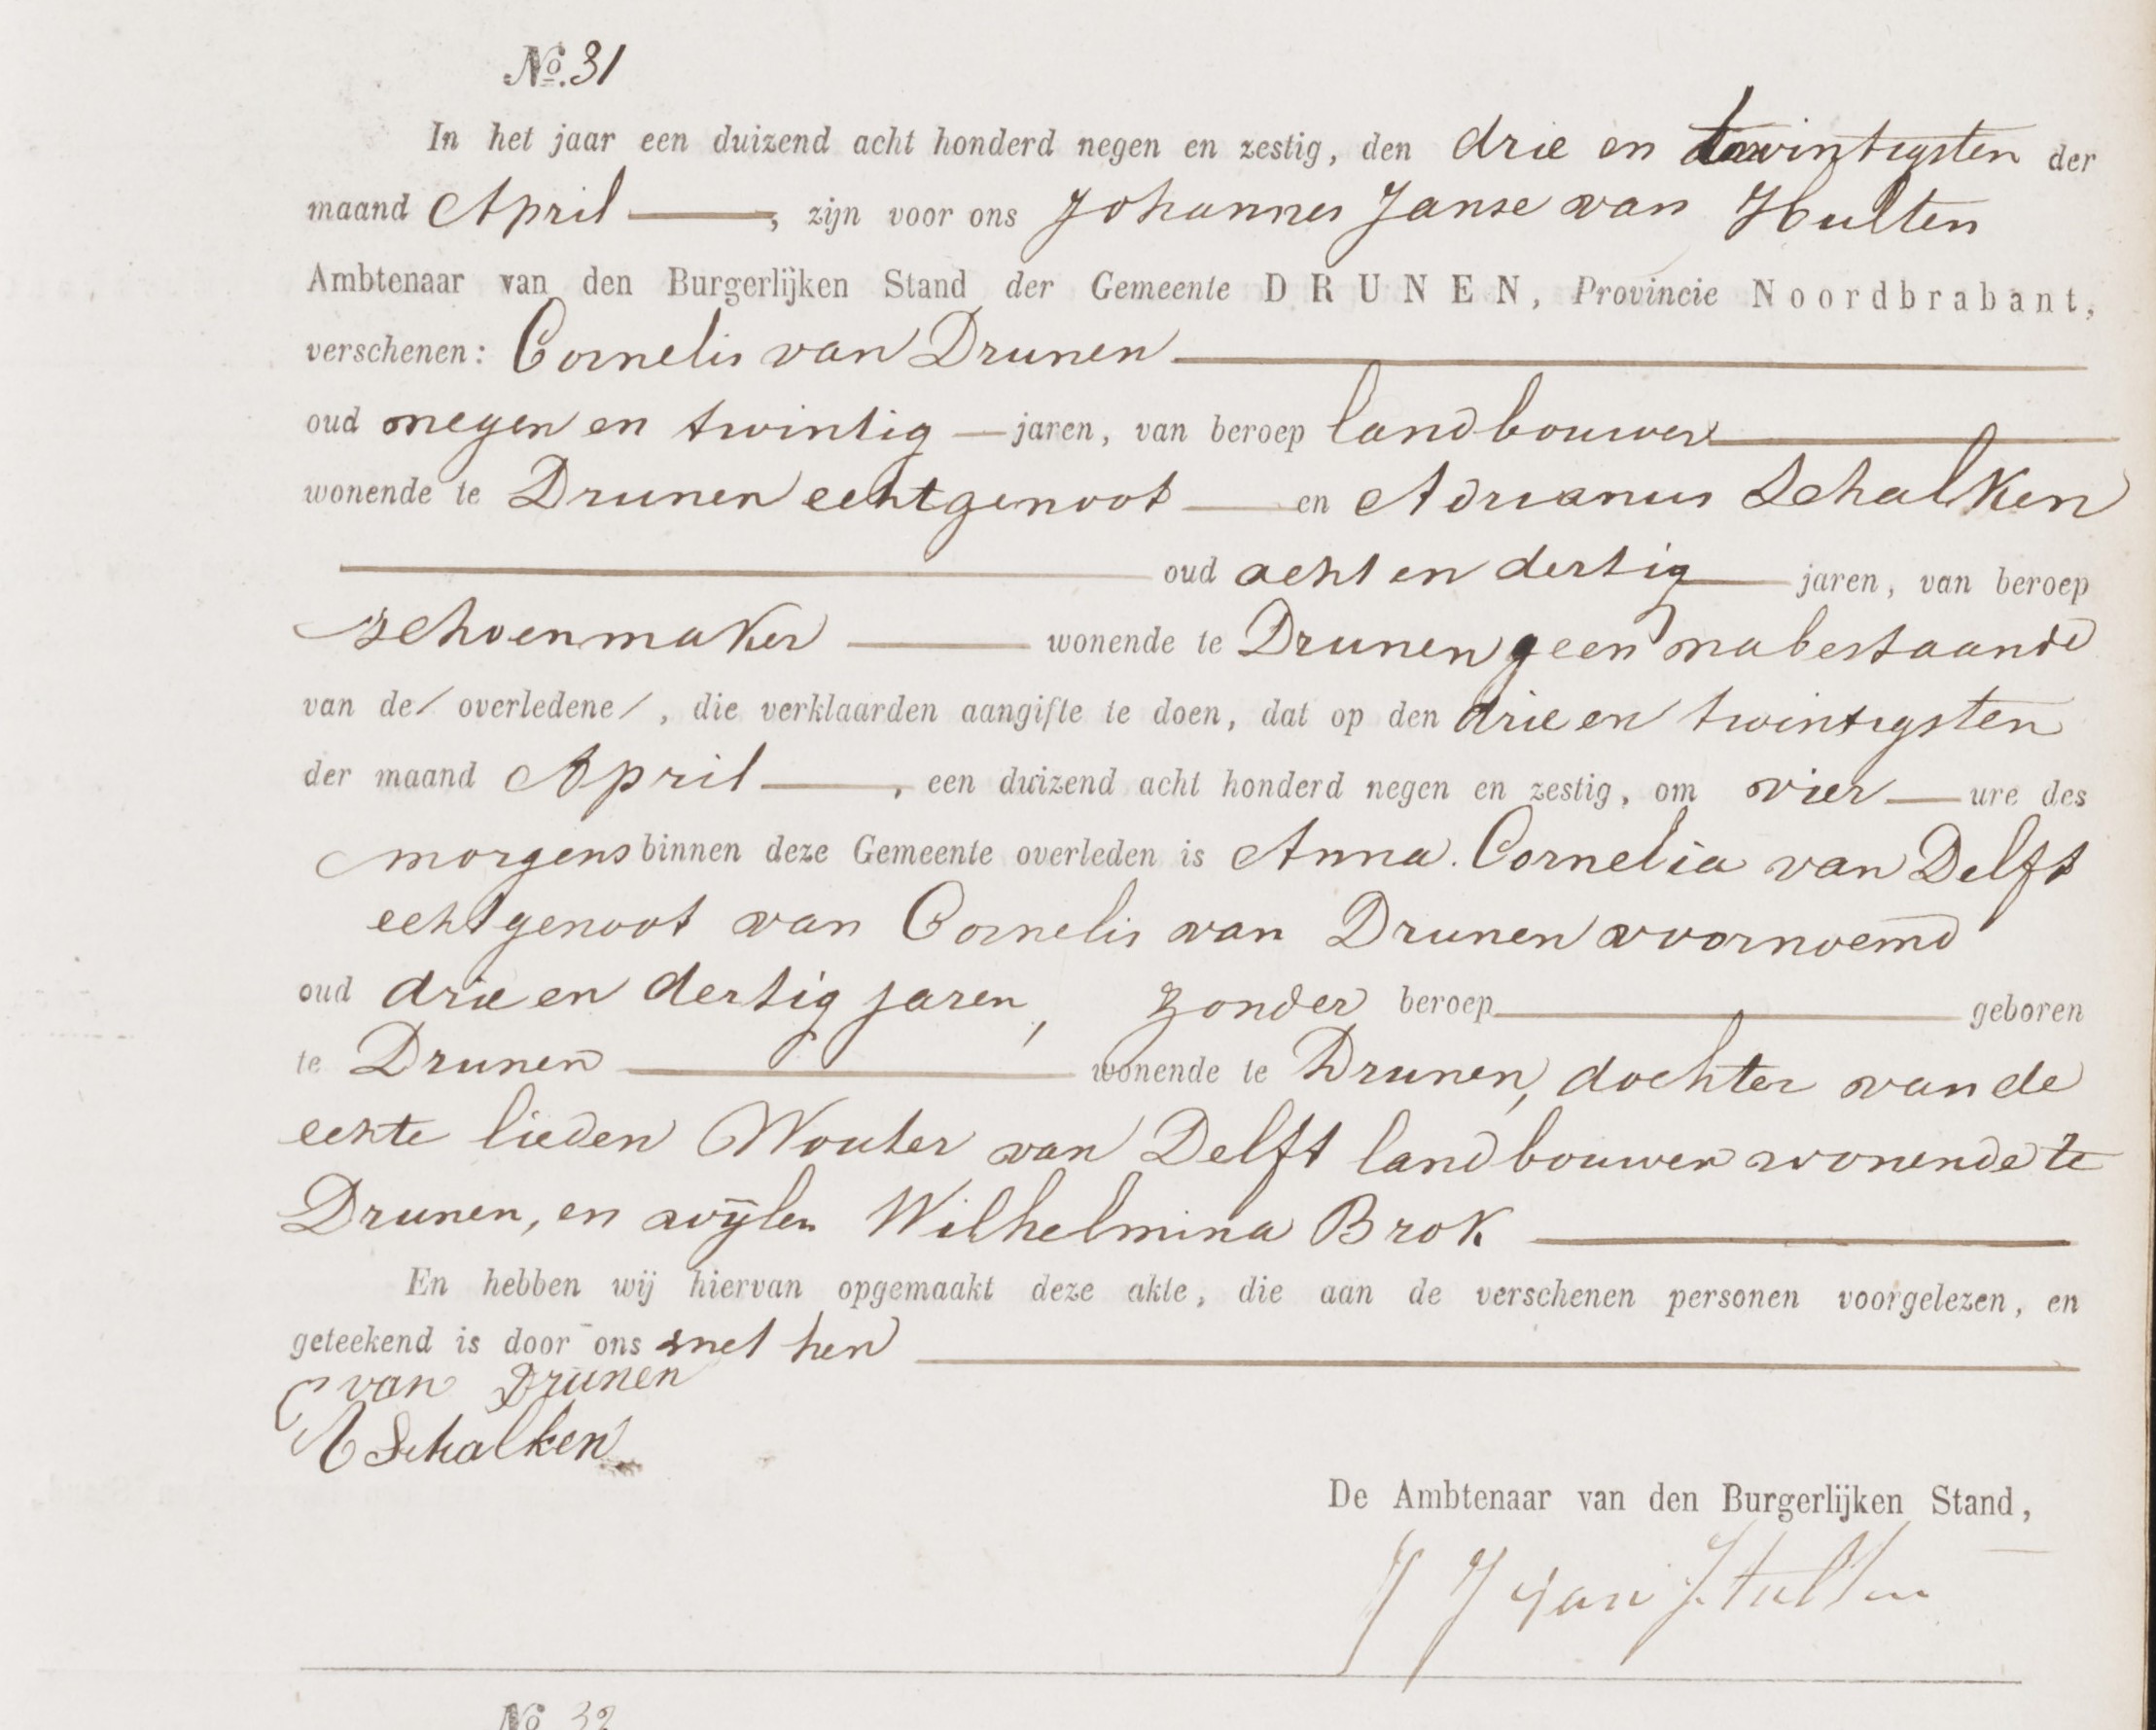 No. 31
In het jaar een duizend acht honderd negen en zestig, den drie en twintigsten der
maand April —, zijn voor ons Johannes Janse van Hulten
Ambtenaar van den Burgerlijken Stand der Gemeente DRUNEN, Provincie Noordbrabant,
verschenen: Cornelis van Drunen —
oud negen en twintig — jaren, van beroep landbouwer —
wonende te Drunen echtgenoot — en Adrianus Schalken
— oud acht en dertig — jaren, van beroep
schoenmaker — wonende te Drunen geen nabestaande
van de/ overledene/, die verklaarden aangifte te doen, dat op den drie en twintigsten
der maand April —, een duizend acht honderd negen en zestig, om vier — ure des
morgens binnen deze Gemeente overleden is Anna Cornelia van Delft
echtgenoot van Cornelis van Drunen voornoemd
oud drie en dertig jaren, zonder beroep — geboren
te Drunen — wonende te Drunen, dochter van de
echte lieden Wouter van Delft landbouwer wonende te
Drunen, en wijlen Wilhelmina Brok —
En hebben wij hiervan opgemaakt deze akte, die aan de verschenen personen voorgelezen, en
geteekend is door ons met hen —
C van Drunen
A Schalken
De Ambtenaar van den Burgerlijken Stand,
J J van Hulten
No 32